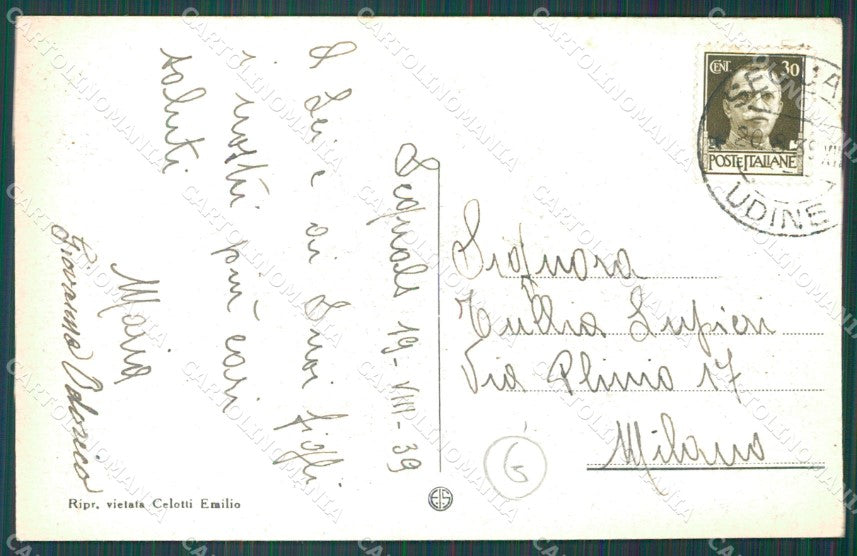 Sequals 19-VIII-39
A Lei e ai Suoi figli
i nostri più cari
saluti
Maria
Giovanna Odorico
Ripr. vietata Celotti Emilio
CENT. 30
POSTE ITALIANE
SEQUALS
UDINE
Signora
Tullia Lupieri
Via Plinio 17
Milano
G
CARTOLINOMANIA